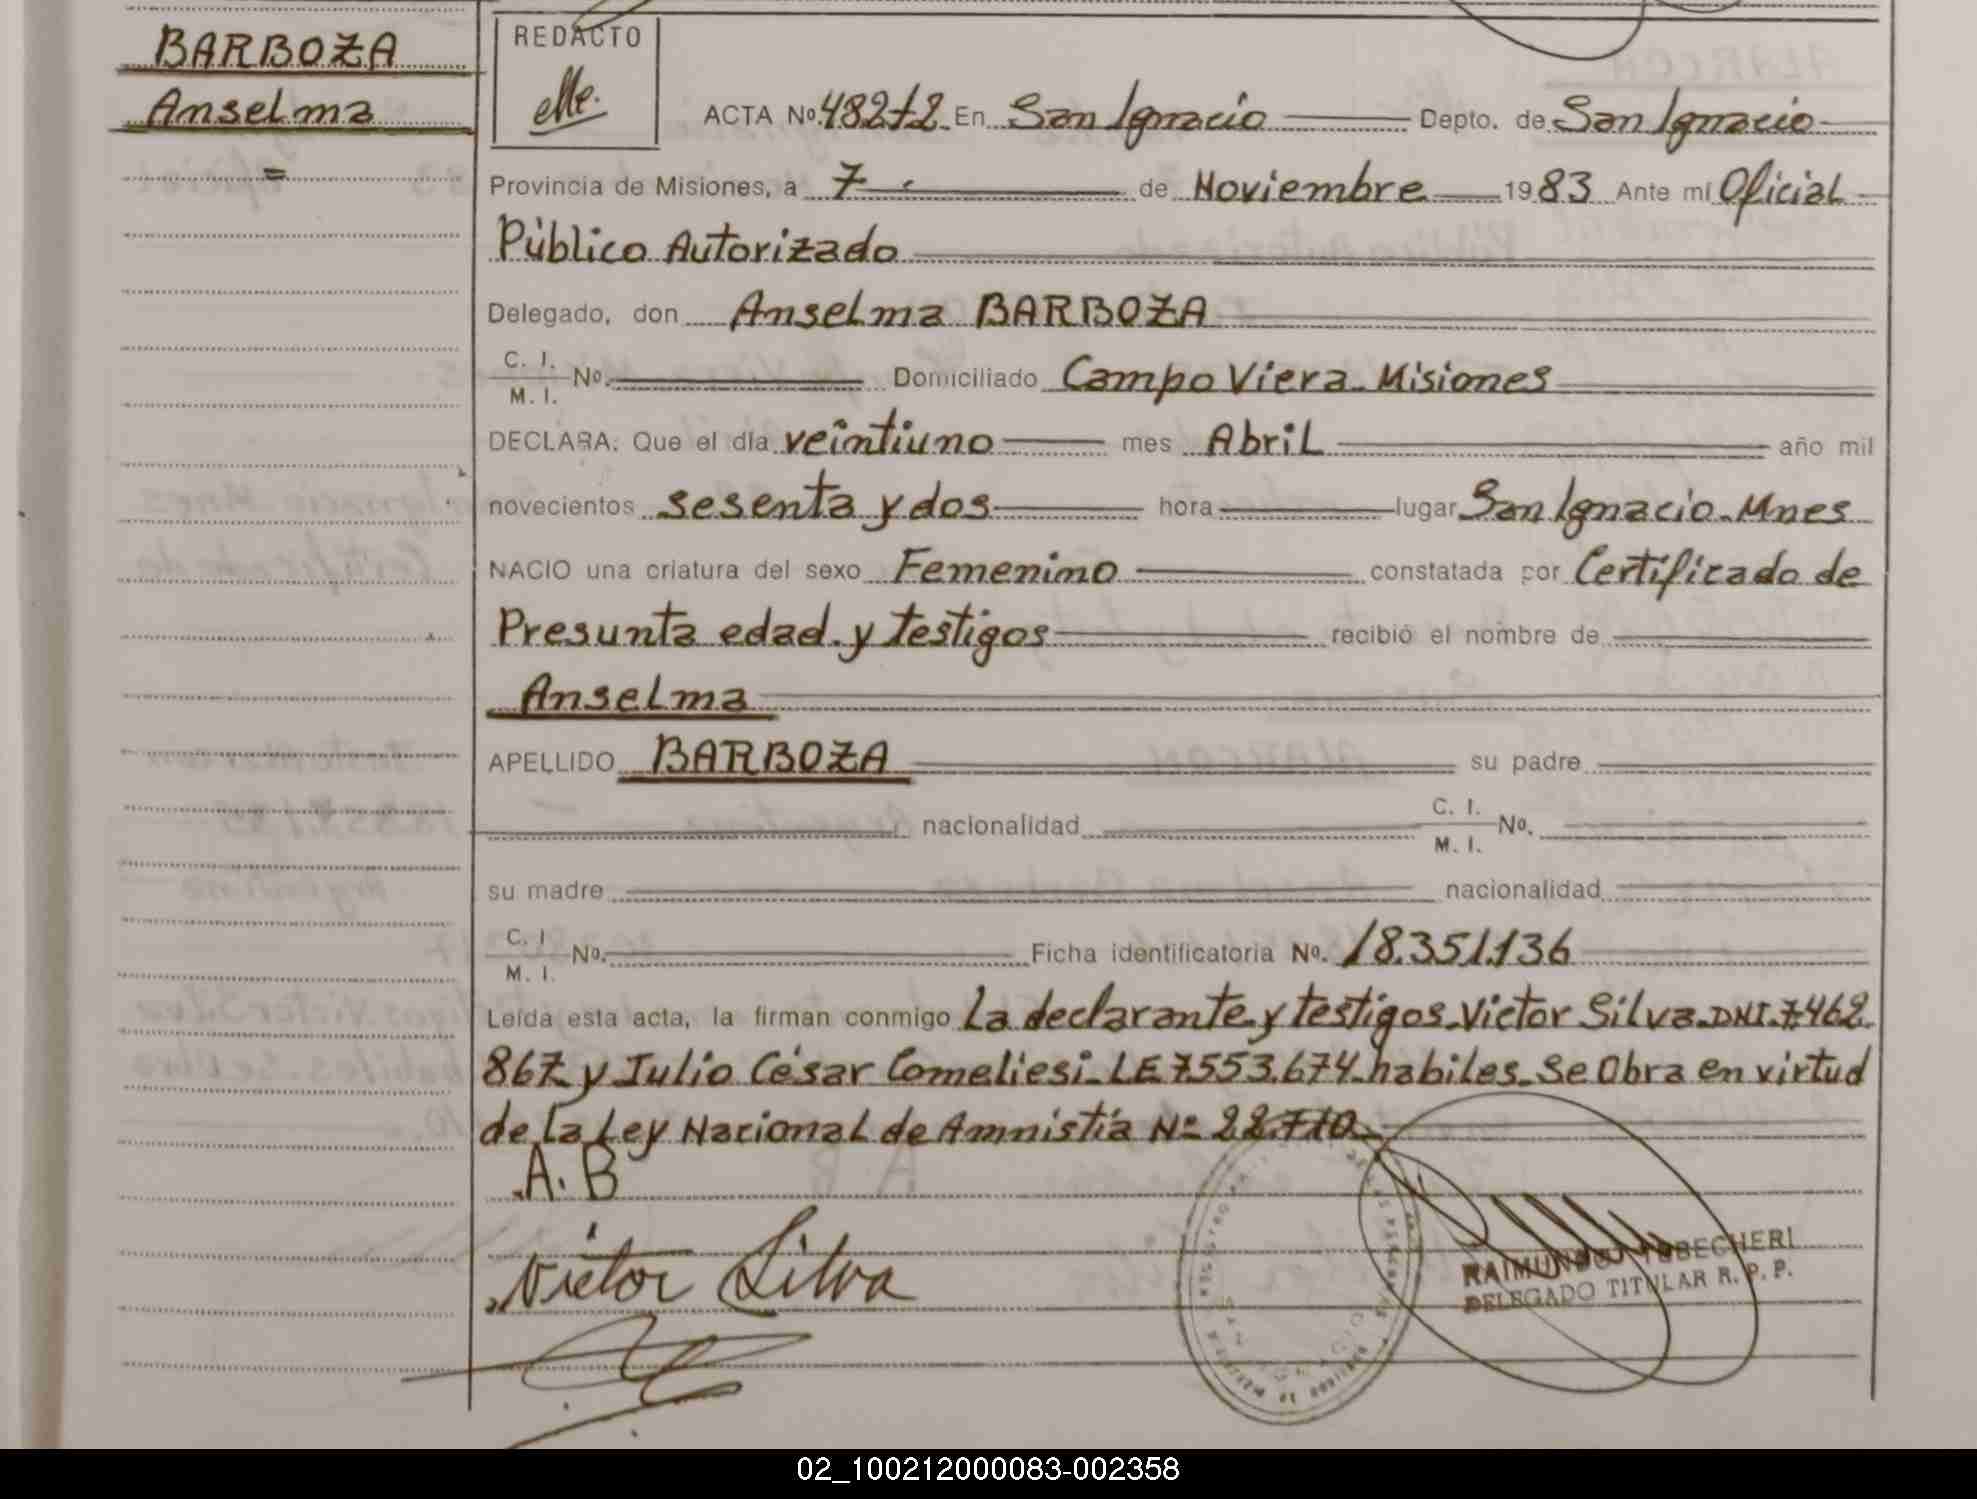 BARBOZA
Anselma
=
REDACTO
ACTA Nº 48272 En San Ignacio Depto. de San Ignacio
Provincia de Misiones, a 7 de Noviembre 1983 Ante mí Oficial
Público Autorizado
Delegado, don Anselma BARBOZA
C. I. M. I. Nº. Domiciliado Campo Viera - Misiones
DECLARA: Que el día veintiuno mes Abril año mil
novecientos sesenta y dos hora lugar San Ignacio - Mnes
NACIO una criatura del sexo Femenino constatada por Certificado de
Presunta edad. y testigos recibió el nombre de
Anselma
APELLIDO BARBOZA su padre
nacionalidad C. I. M. I. Nº.
su madre nacionalidad
C. I M. I. Nº. Ficha identificatoria Nº. 18.351.136
Leída esta acta, la firman conmigo la declarante y testigos. Victor Silva. DNI. 7.462.
867. y Julio César Comeliesi - LE 7.553.674 - habiles. Se Obra en virtud
de la Ley Nacional de Amnistía Nº 22.710.
A. B
Victor Silva
RAIMUNDO YEBECHERI
DELEGADO TITULAR R. P. P.
02_100212000083-002358